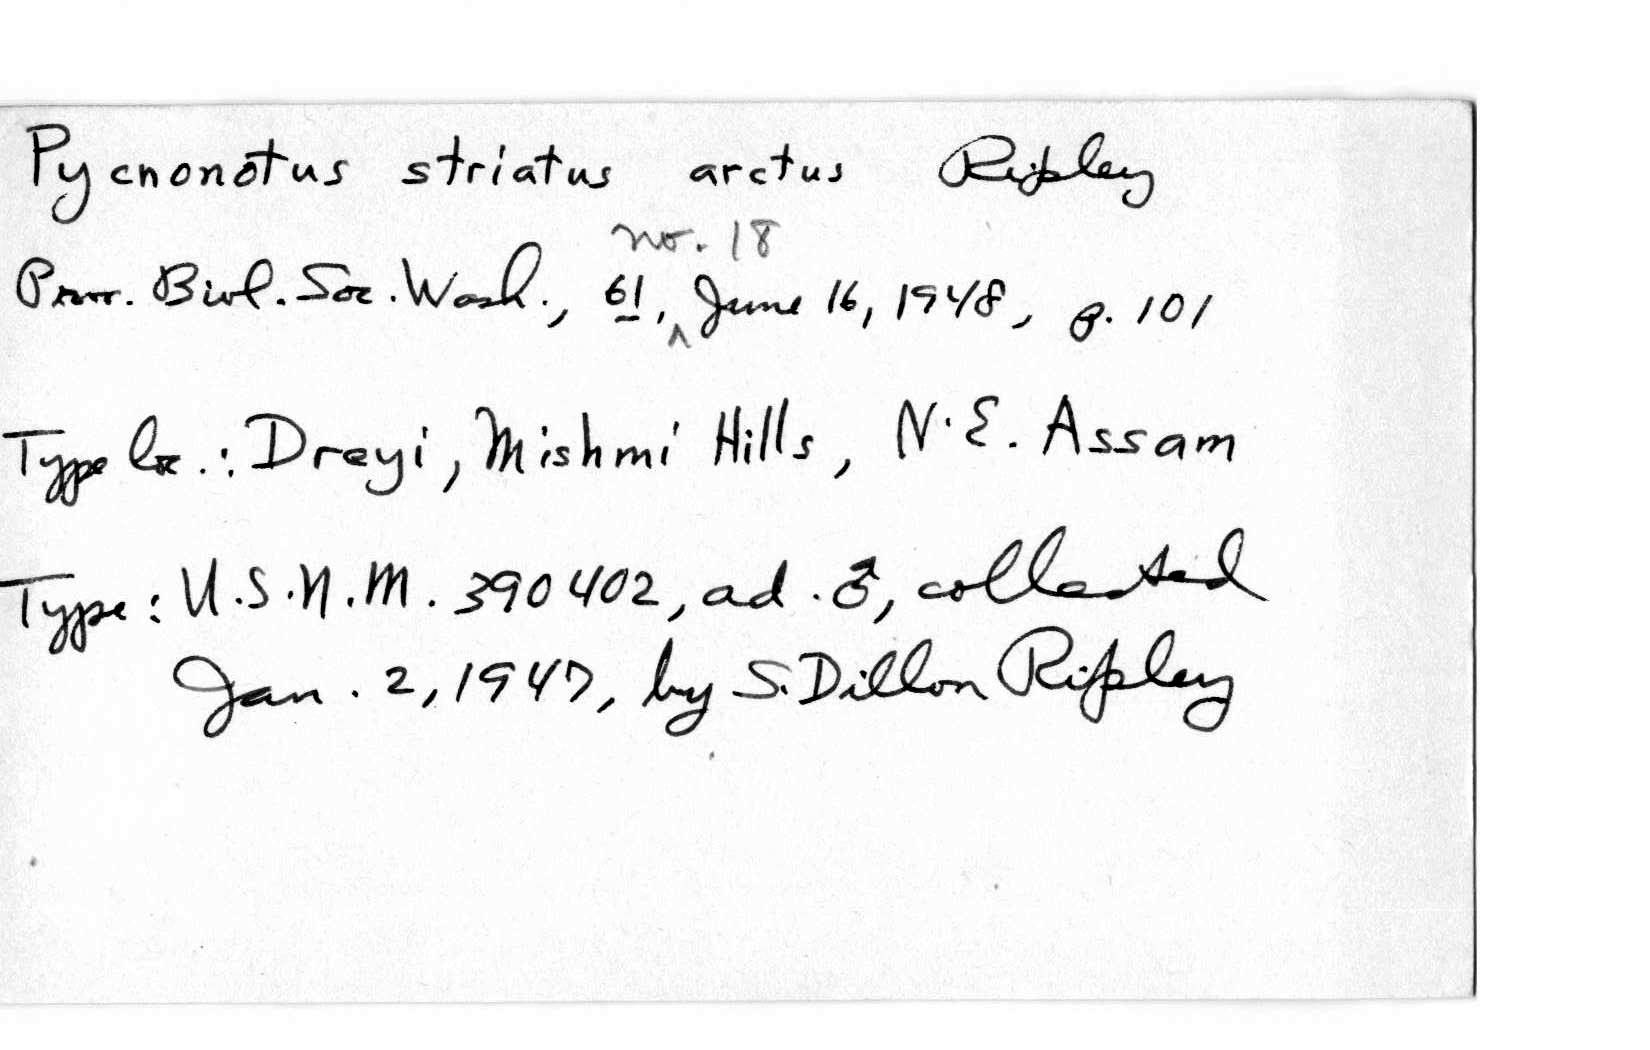 Pycnonotus striatus arctus Ripley
no. 18
Proc. Biol. Soc. Wash., 61, ^ June 16, 1948, p. 101
Type loc.: Dreyi, Mishmi Hills, N.E. Assam
Type: U.S.N.M. 390402, ad. ♂, collected
Jan. 2, 1947, by S. Dillon Ripley